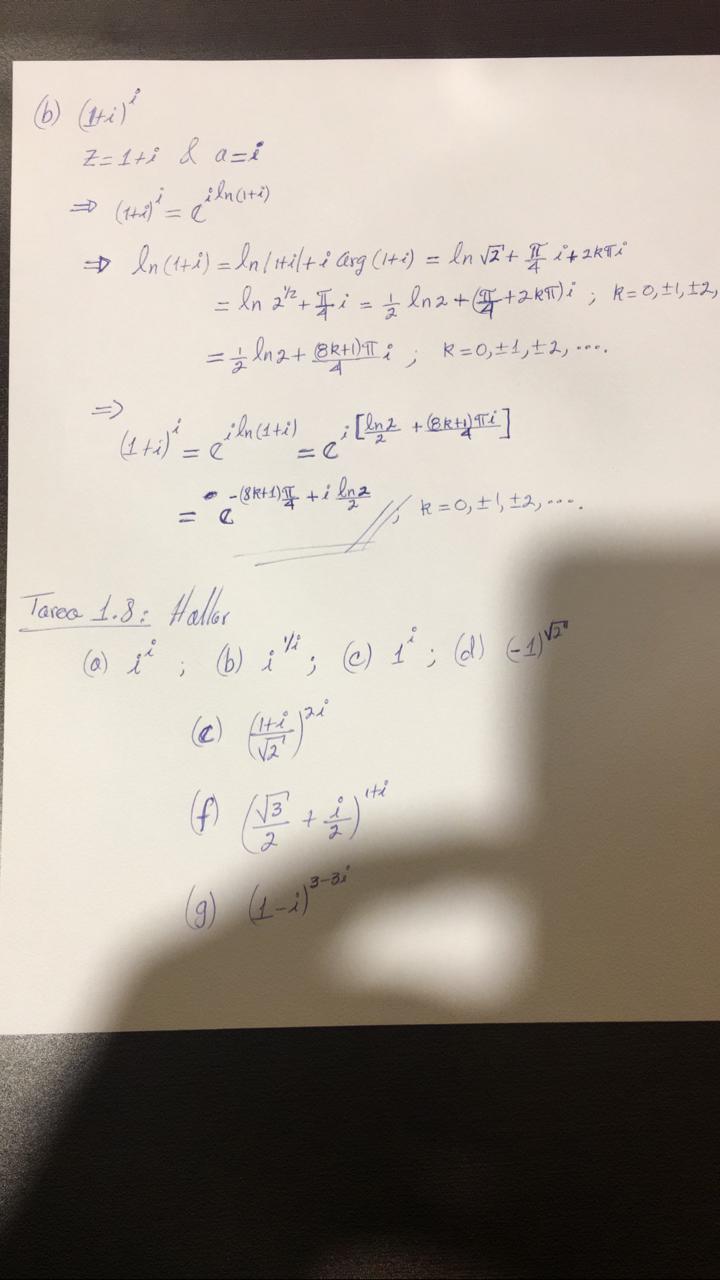 (b) (1+i)^i
z=1+i & a=i
⇒ (1+i)^i = e^{i ln(1+i)}
⇒ ln(1+i) = ln|1+i|+i arg(1+i) = ln √2 + π/4 i + 2kπi
= ln 2^{1/2} + π/4 i = 1/2 ln2 + (π/4 + 2kπ)i ; k=0,±1,±2,
= 1/2 ln2 + (8k+1)π/4 i ; k=0,±1,±2,....
⇒
(1+i)^i = e^{i ln(1+i)} = e^{i[ln2/2 + (8k+1)πi/4]}
= e^{-(8k+1)π/4 + i ln2/2} // ; k=0,±1,±2,....
Tarea 1.8: Hallar
(a) i^i ; (b) i^{1/i} ; (c) 1^i ; (d) (-1)^{√2}
(e) ((1+i)/√2)^{2i}
(f) (√3/2 + i/2)^{1+i}
(g) (1-i)^{3-3i}